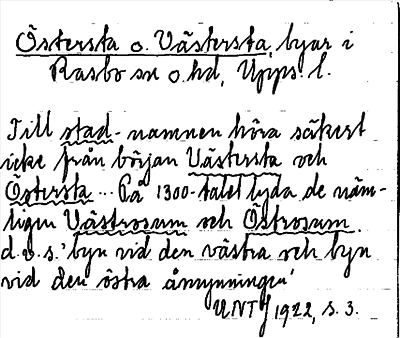 Östersta o. Västersta, byar i
Rasbo sn o. hd, Upps. l.
Till stad-namnen höra säkert
icke från början Västersta och
Östersta... På 1300-talet lyda de näm-
ligen Västrosum och Östrosum.
d.v.s. 'byn vid den västra och byn
vid den östra åmynningen'
UNT 1922, s. 3.